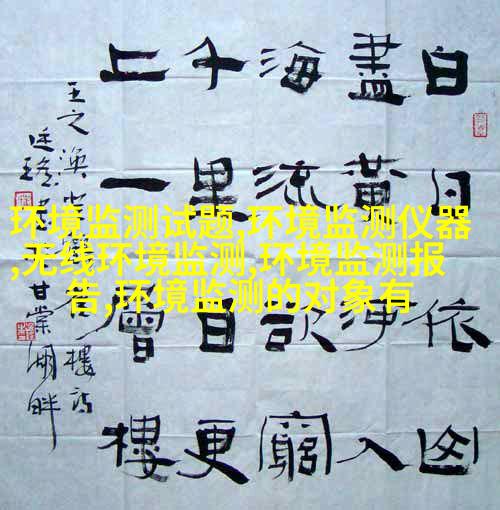 环境监测试题,环境监测仪器
,无线环境监测,环境监测报
告,环境监测的对象有
白日依山
盡黃河入
海流欲窮
千里目更
上一層樓
王之渙登鸛雀樓詩
甘棠湖畔